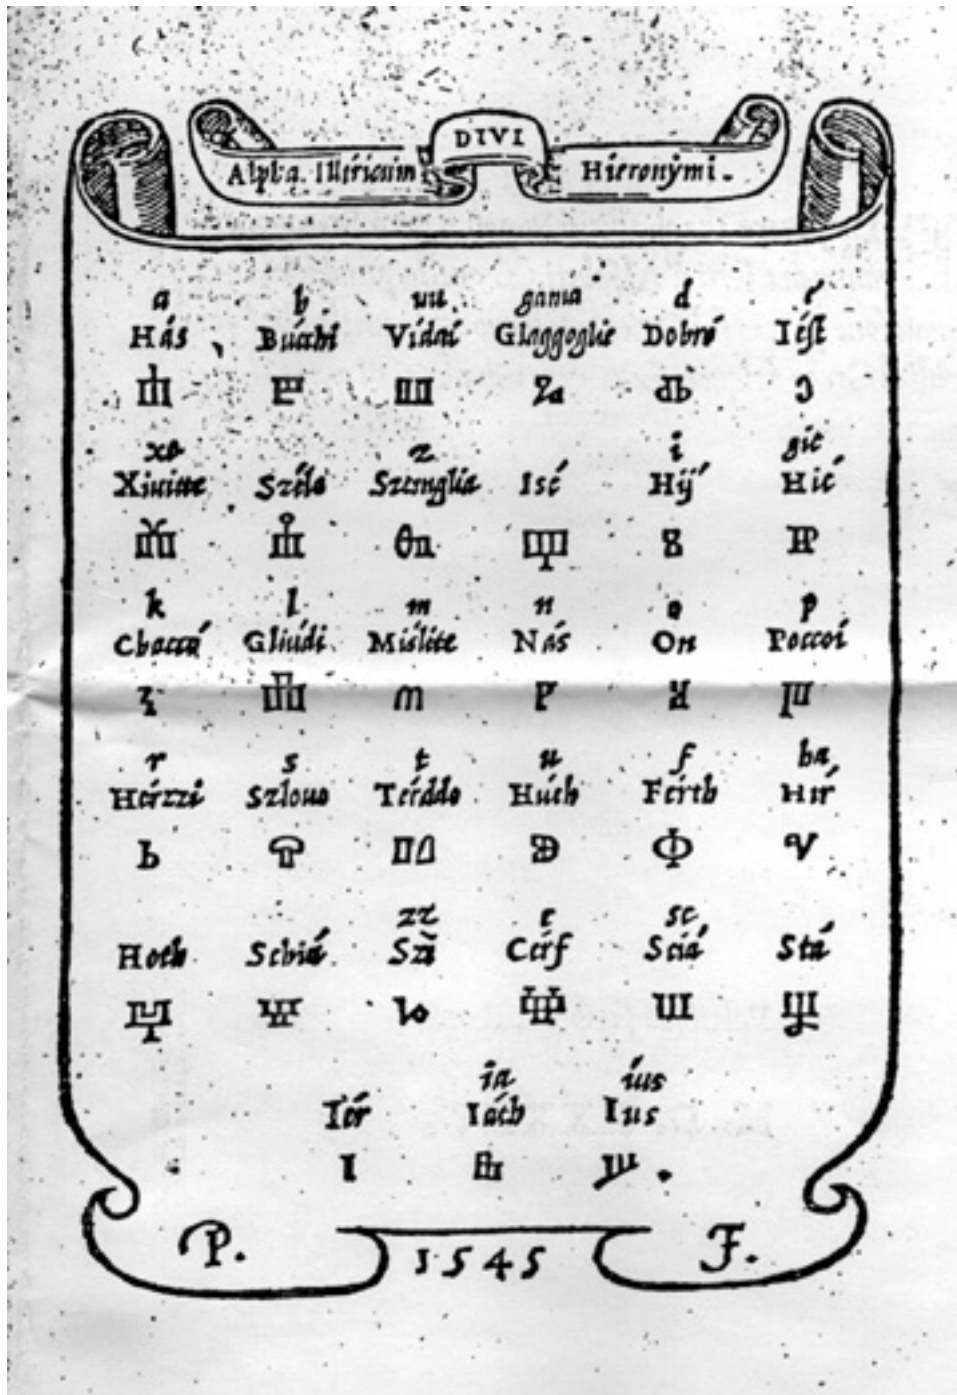 DIVI
Alpha. Illiricum Hieronÿmi.
a b uu gama d é
Hás Búchi Vídaí Glaggoglie Dobró Iést
Ⰰ Ⰱ Ⰲ Ⰳ Ⰴ Ⰵ
xe z i gie
Xiuite Széle Szemglia Isé Hÿ́ Hié
Ⰶ Ⰷ Ⰸ Ⰹ Ⰼ
k l m n o p
Chaccó Gliúdi Mislite Nás On Poccoí
Ⰽ Ⰾ Ⰿ Ⱀ Ⱁ Ⱂ
r s t u f ha
Hérzzi Szlouo Térddo Húch Férth Hır
Ⱃ Ⱄ Ⱅ Ⱆ Ⱇ Ⱈ
zz c sc
Hoth Schiá Szi Cérf Sciá Stá
Ⱉ Ⱌ Ⱍ Ⱎ Ⱋ
ia íus
Iér Iách Ius
Ⰺ Ⱑ Ⱓ.
P. 1545 F.